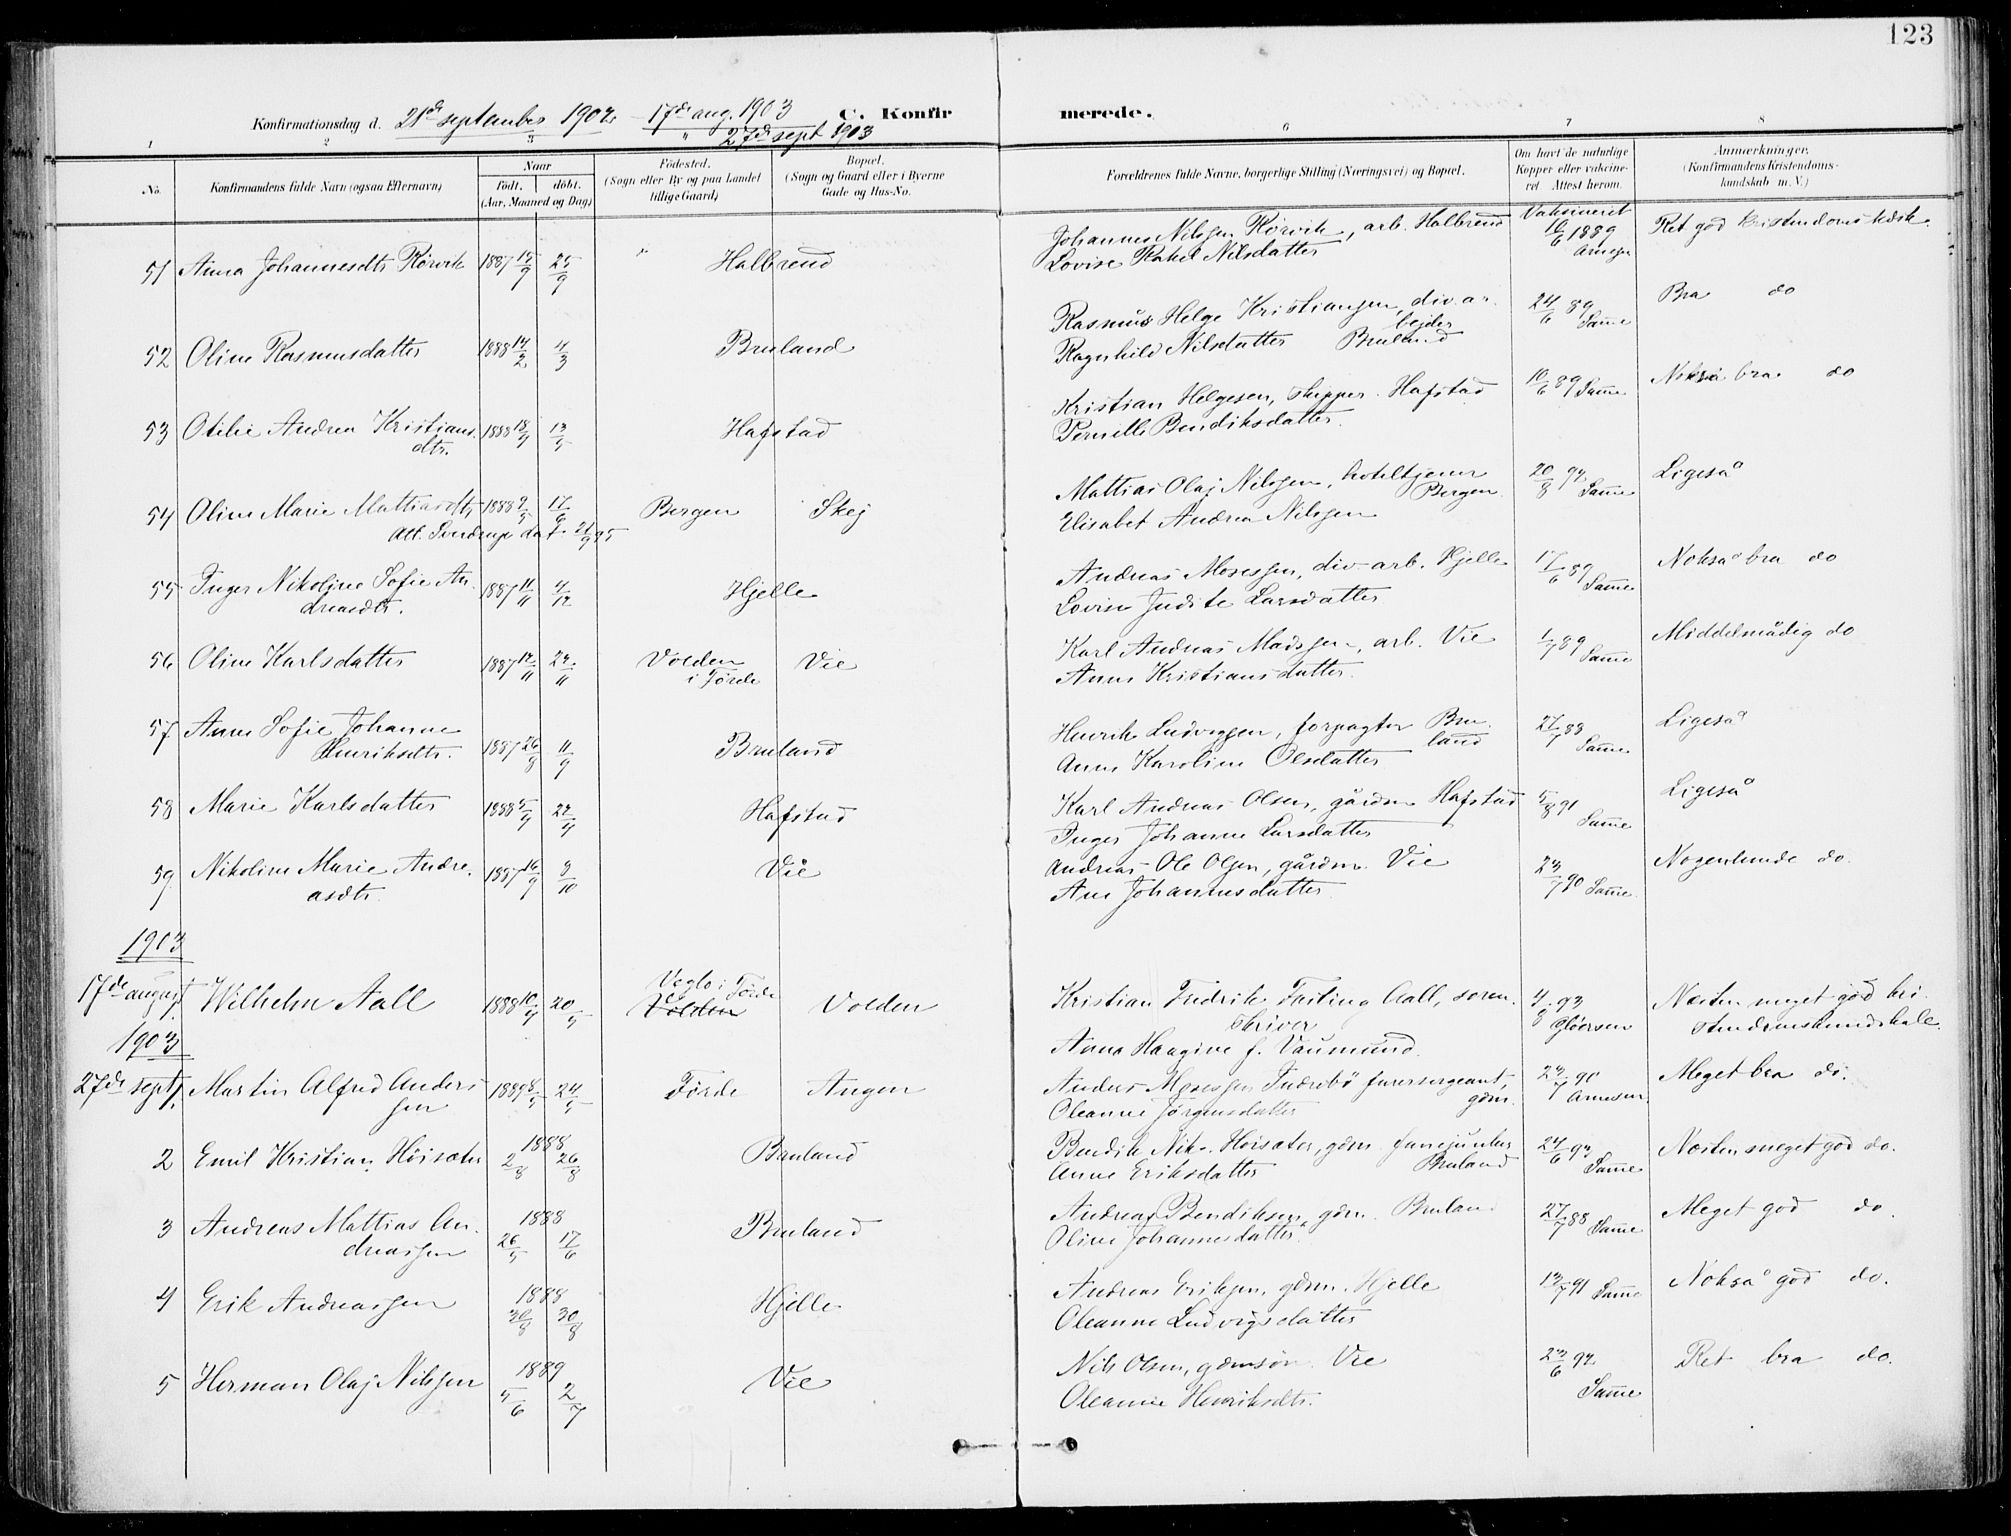 123
Konfirmationsdag d. 21de september 1902 - 17de aug. 1903 C. Konfirmerede.
" 27de sept 1903
1 2 3 6 7 8
No. Konfirmandens fulde Navn (ogsaa Efternavn)
Naar født. døbt. (Aar, Maaned og Dag)
Fødested. (Sogn eller By og paa Landet tillige Gaard)
Bopæl. (Sogn og Gaard eller i Byerne Gade og Hus-No.
Forældrenes fulde Navne, borgerlige Stilling (Næringsvei) og Bopæl.
Om havt de naturlige Kopper eller vakcineret. Attest herom.
Anmærkninger. (Konfirmandens Kristendomskundskab m. V.)
51 Anna Johannesdtr Rørvik 1887 15/9 25/9 " Halbrend Johannes Nilsen Rørvik, arb. Halbrend Vaksineret 10/6 1889 Arnesen Ret god kristendomskdsk.
Lovise Rakel Nilsdatter
52 Oline Rasmusdatter 1888 14/2 4/3 Bruland Rasmus Helge Kristiansen, div. arbejder 24/6 89 Same Bra do
Ragnhild Nilsdatter Bruland
53 Otilie Andrea Kristiansdtr. 1888 18/4 13/5 Hafstad Kristian Helgesen, skipper. Hafstad 10/6 89 Same Nokså bra do
Pernille Bendiksdatter.
54 Oline Marie Mattiasdtr 1888 9/5 17/6 Bergen Skej Mattias Olaj Nilssen, hoteltjener Bergen 20/8 92 Same Ligeså
Att. Sverdrup dat. 21/9 95 Elisabet Andrea Nilssen
55 Inger Nikoline Sofie Andreasdtr. 1887 11/11 4/12 Hjelle Andreas Mosessen, div. arb. Hjelle 17/6 89 Same Nokså bra do
Lovise Judite Larsdatter
56 Oline Karlsdatter 1887 12/11 27/11 Volden i Førde Vie Karl Andreas Madssen, arb. Vie 1/7 89 Same Middelmådig do
Anne Kristiansdatter.
57 Anne Sofie Johanne Henriksdtr. 1887 26/8 11/9 Bruland Henrik Ludvigsen, forpagter Bruland 27/7 88 Same Ligeså
Anne Karoline Olsdatter
58 Marie Karlsdatter 1888 5/4 22/4 Hafstad Karl Andreas Olsen, gårdm Hafstad 5/8 91 Same Ligeså
Inger Johanne Larsdatter
59 Nikoline Marie Andreasdtr. 1887 16/9 9/10 Vie Andreas Ole Olsen, gårdm. Vie 23/7 90 Same Nogenlunde do.
Ane Johannesdatter.
1903
17de august Wilhelm Aall 1888 10/4 20/5 Veglo i Førde Volden Volden Kristian Fredrik Faiting Aall, sorenskriver 4/8 93 Gløersen Næsten meget god kristendomskundskab.
Anna Haagine f. Vaumund.
1903
27de sept. Martin Alfred Anderssen 1889 8/5 24/5 Førde Angen Anders Mosessen Indrebø furersergeant, gdm. 23/7 90 Arnesen Meget bra do.
Oleanne Jørgensdatter
2 Emil Kristian Höisæter 1888 2/8 26/8 Bruland Bendik Nik. Höisæter, gdm. Bruland 24/6 93 Same Næsten meget god do.
Anne Eriksdatter
3 Andreas Mattias Andreassen 1888 26/5 17/6 Bruland Andreas Bendiksen, gdm. Bruland 27/7 88 Same Meget god do.
Oline Johannesdatter
4 Erik Andreassen 1888 30/8 Hjelle Andreas Eriksen, gdm. Hjelle 13/7 91 Same Nokså god do.
Oleanne Ludvigsdatter
5 Herman Olaj Nilssen 1889 5/6 2/7 Vie Nils Olsen, gdmsøn Vie 23/6 92 Same Ret bra do.
Oleanne Henriksdtr.